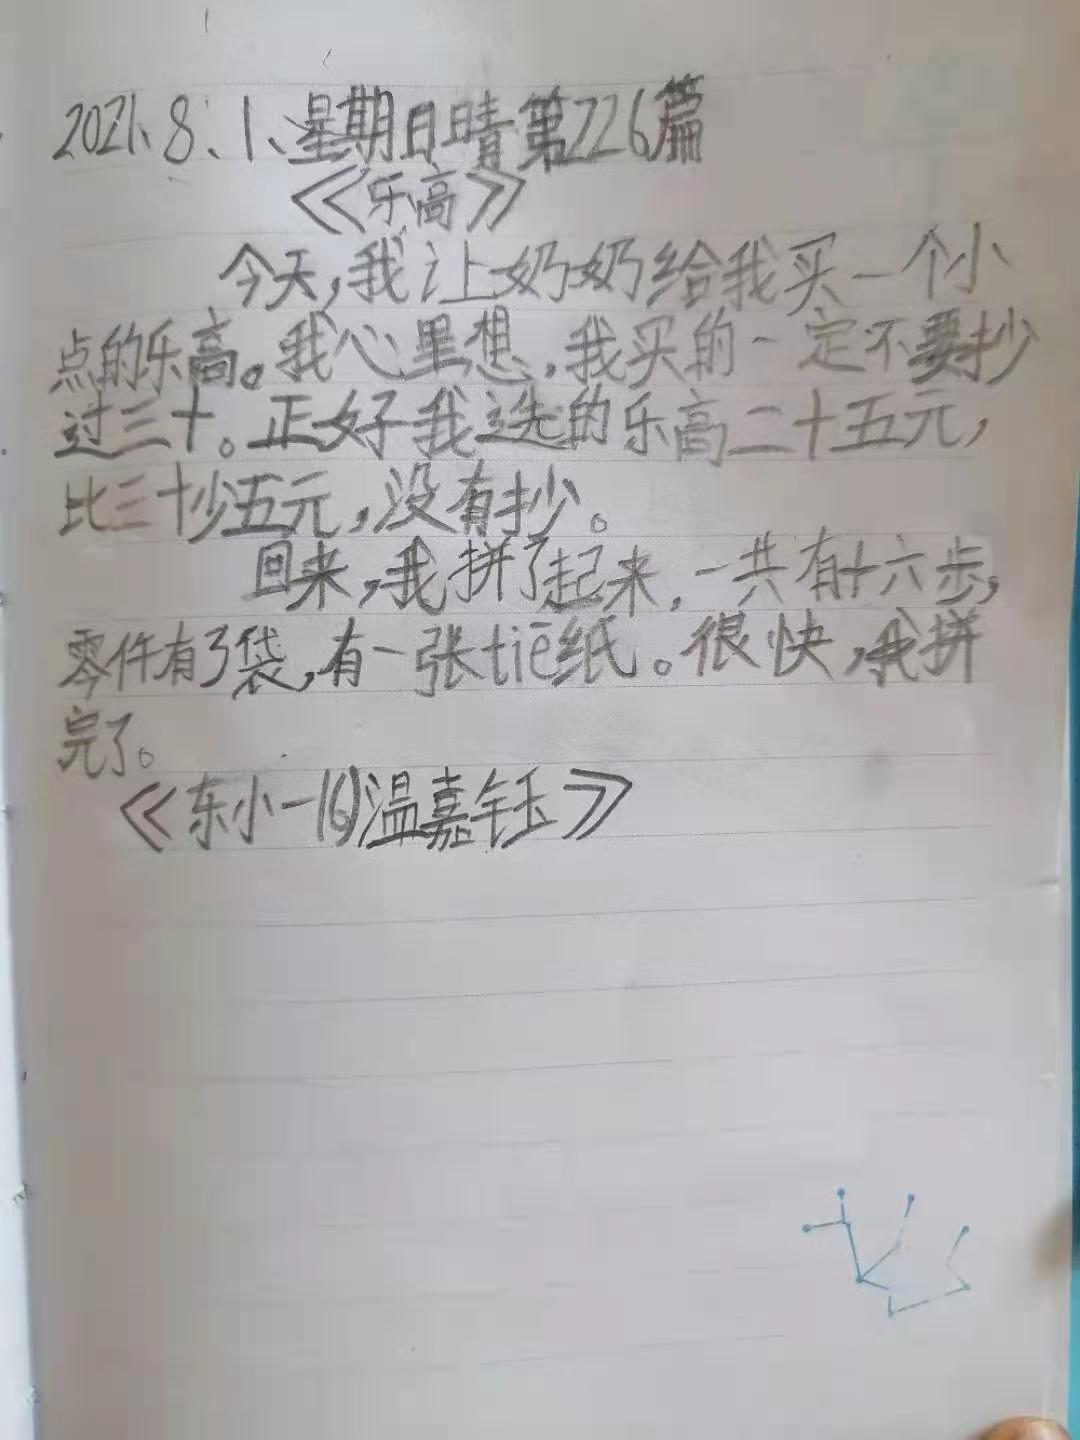 2021、8、1、星期日晴第226篇
《乐高》
今天，我让奶奶给我买一个小
点的乐高。我心里想，我买的一定不要抄
过三十。正好我选的乐高二十五元，
比三十少五元，没有抄。
回来，我拼了起来，一共有十六步，
零件有3袋，有一张tiē纸。很快，我拼
完了。
《东小一(6)温嘉钰》